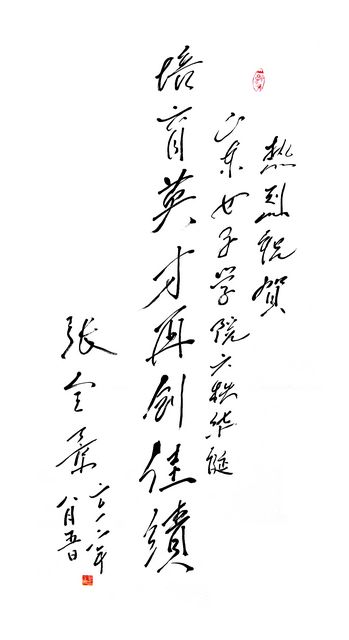 热烈祝贺
山东女子学院六秩华诞
培育英才再创佳绩
张全景
二〇一二年
八月五日